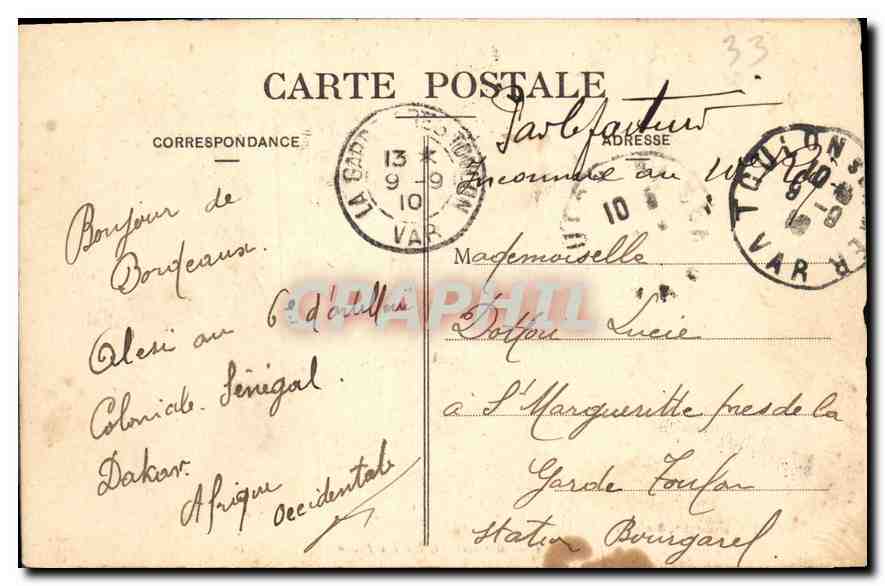 33
CARTE POSTALE
CORRESPONDANCE
ADRESSE
Par le facteur
Inconnue au
LA GARDE PRES TOULON
13 *
9 -9
10
VAR
10
TOULON S MER
9 -9
VAR
Bonjour de
Bordeaux.
Alesi au 6e d'
Coloniale. Sénégal.
Dakar.
Afrique
Occidentale
Mademoiselle
Dotton Lucie
à St Margueritte pres de la
Garde Toulon
station Bourgarel
CPAPHIL